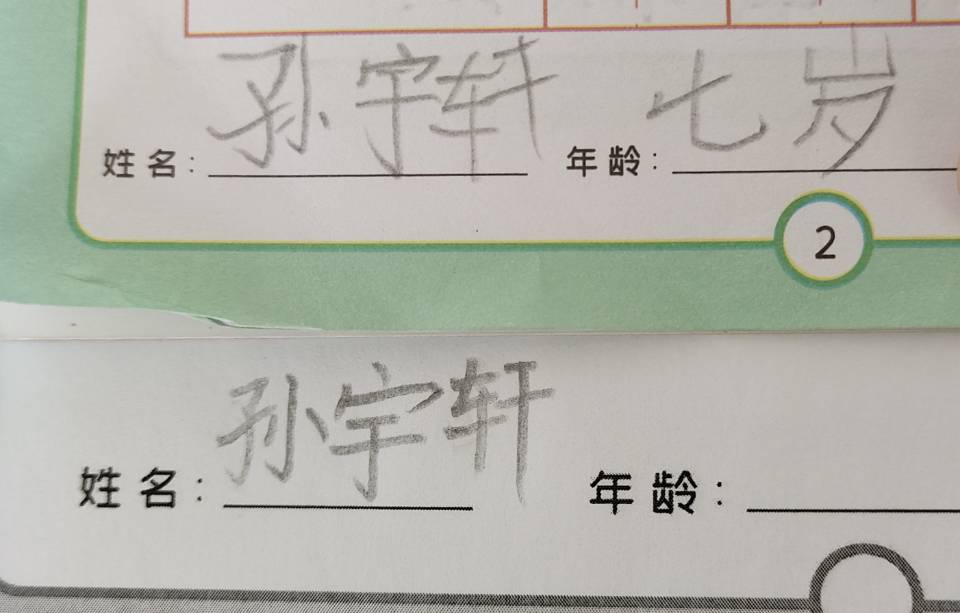 姓名：孙宇轩 年龄：七岁
2
姓名：孙宇轩 年龄：